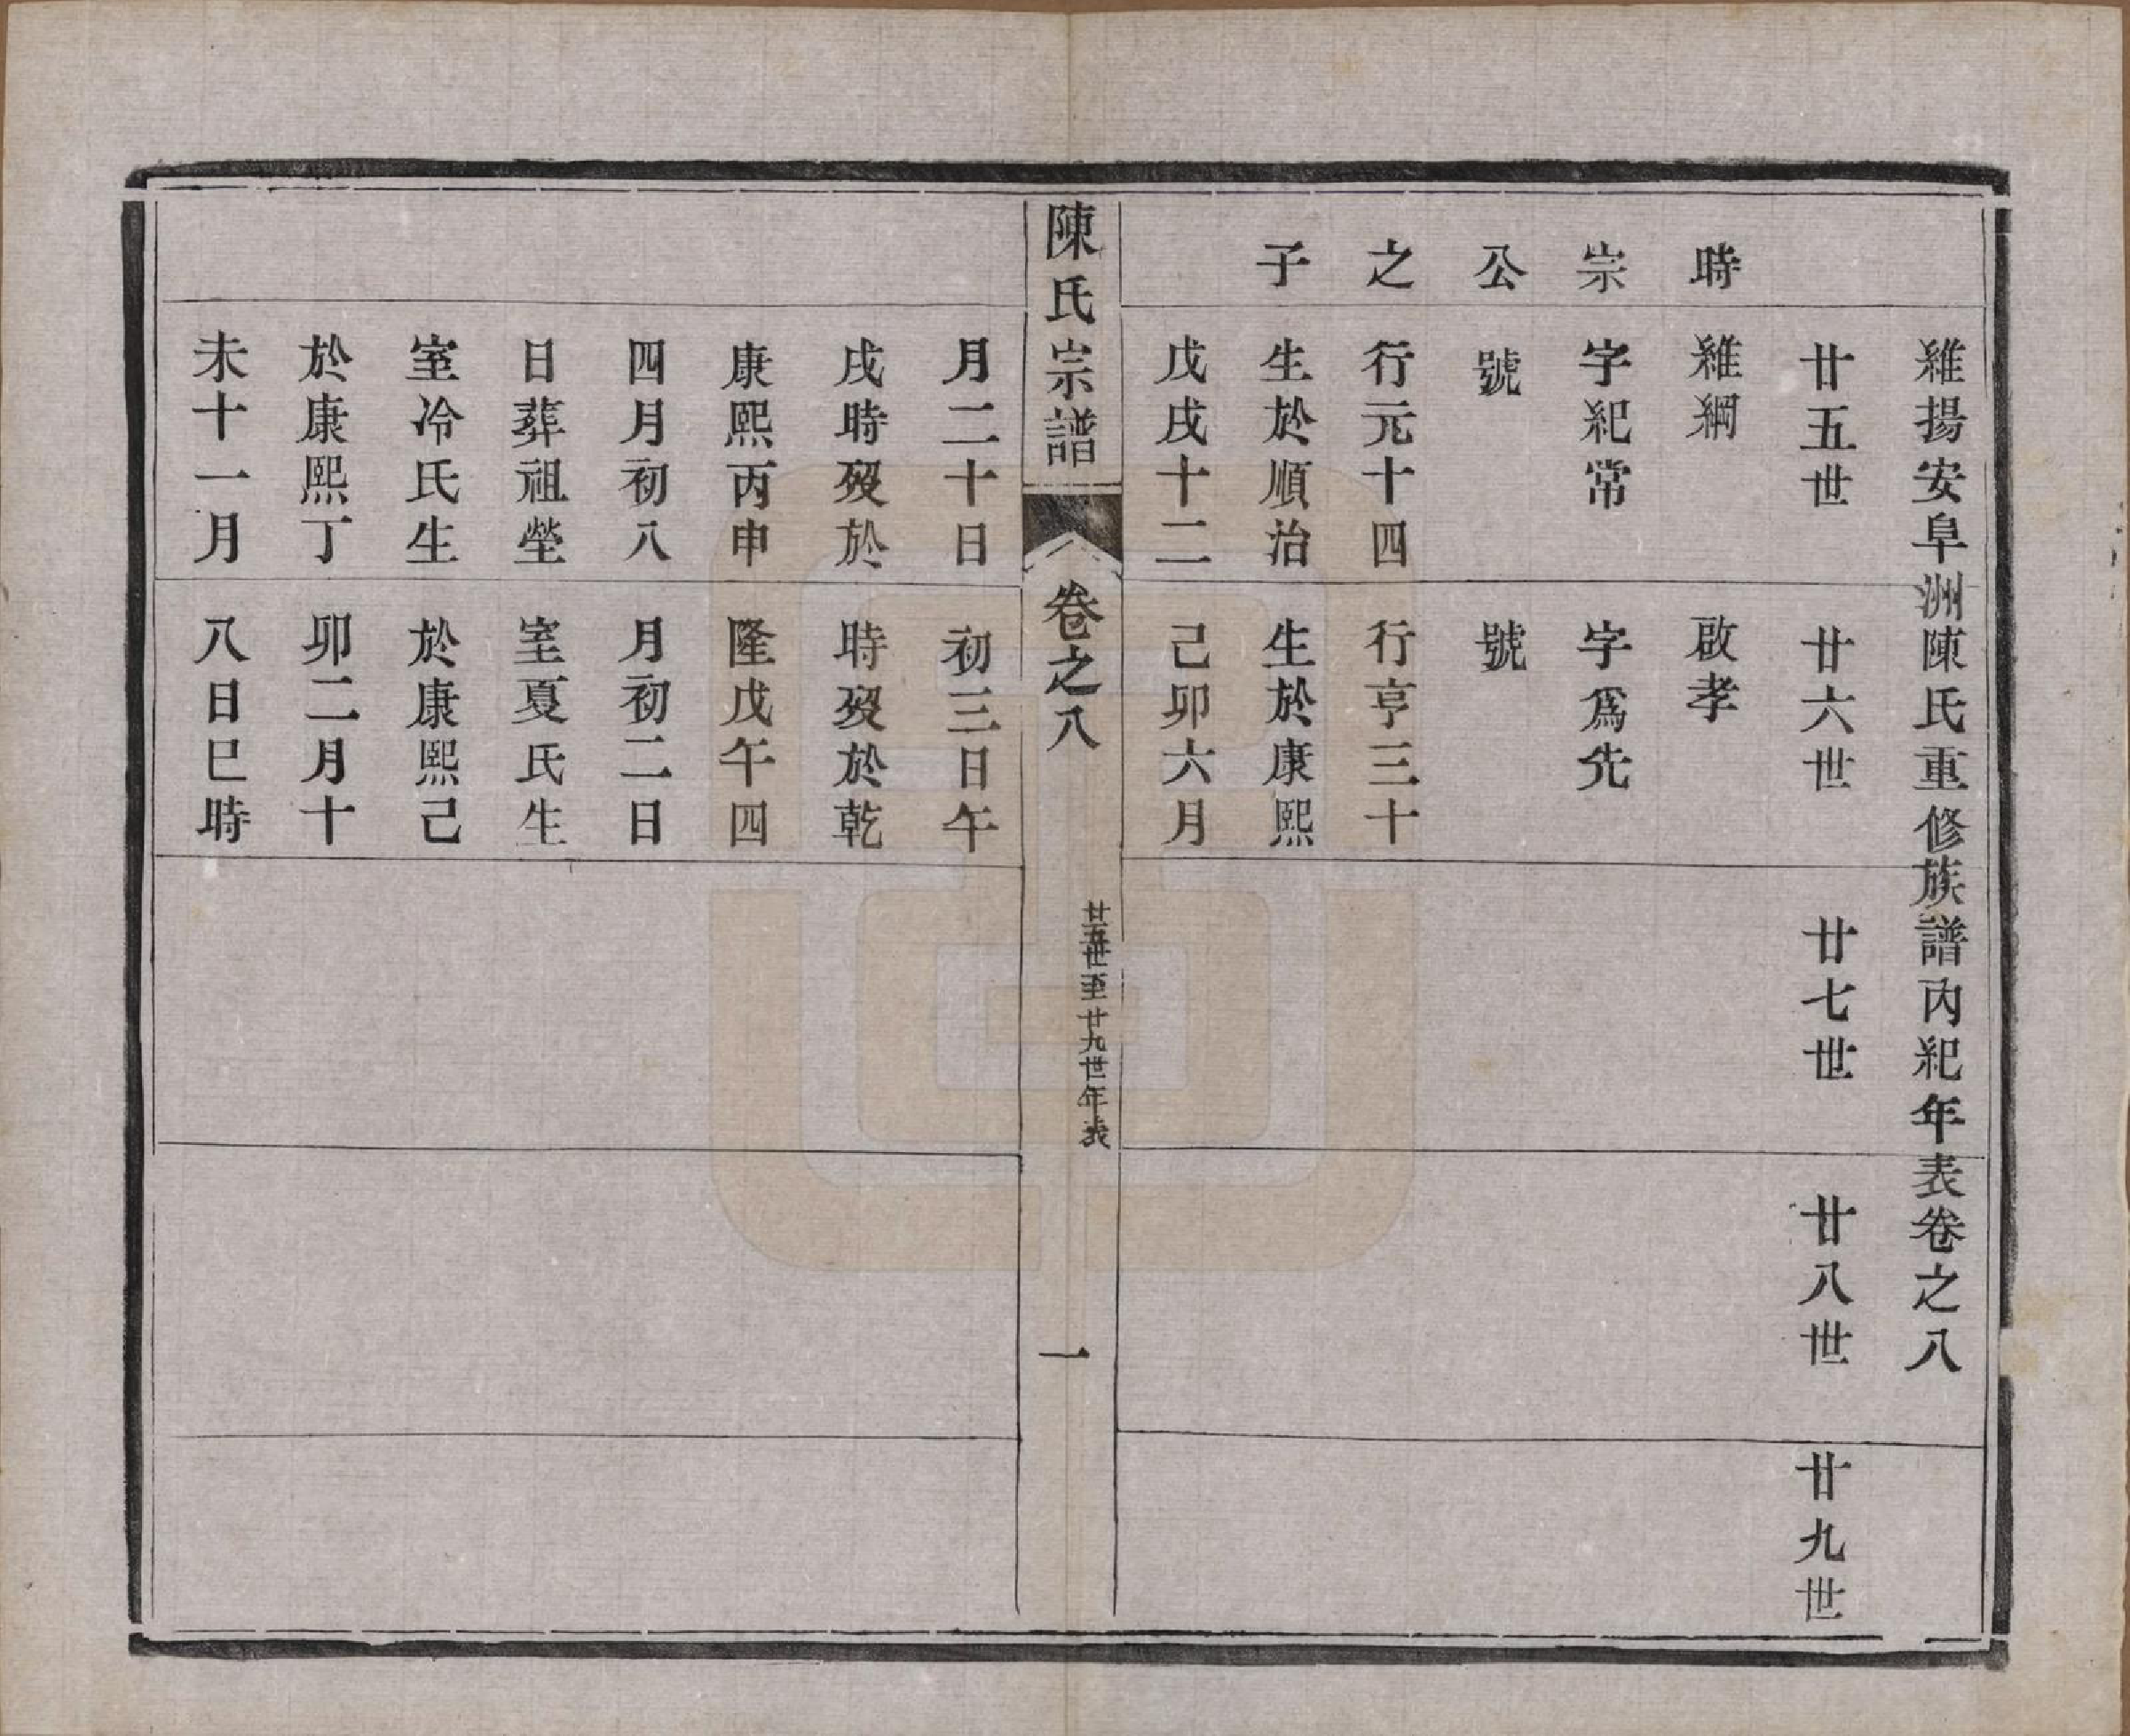 維揚安阜洲陳氏重修族譜內紀年表卷之八
廿五世
廿六世
廿七世
廿八世
廿九世
時
宗
公
之
子
維綱
字紀常
號
行元十四
生於順治
戊戌十二
月二十日
戌時歿於
康熙丙申
四月初八
日葬祖塋
室冷氏生
於康熙丁
未十一月
啟孝
字爲先
號
行亨三十
生於康熙
己卯六月
初三日午
時歿於乾
隆戊午四
月初二日
室夏氏生
於康熙己
卯二月十
八日巳時
陳氏宗譜
卷之八
廿五世至廿九世年表
一